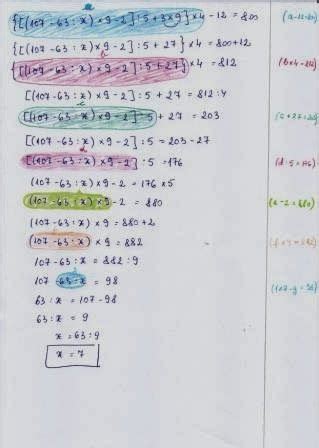 a
{[(107-63:x)×9-2]:5+3×9}×4-12=800 (a-12=800)
{[(107-63:x)×9-2]:5+27}×4=800+12
b
{[(107-63:x)×9-2]:5+27}×4=812 (b×4=812)
[(107-63:x)×9-2]:5+27=812:4
c
[(107-63:x)×9-2]:5+27=203 (c+27=203)
[(107-63:x)×9-2]:5=203-27
d
[(107-63:x)×9-2]:5=176 (d:5=176)
(107-63:x)×9-2=176×5
(107-63:x)×9-2=880 (e-2=880)
(107-63:x)×9=880+2
(107-63:x)×9=882 (f×9=882)
107-63:x=882:9
107-63:x=98 (107-g=98)
63:x=107-98
63:x=9
x=63:9
x=7